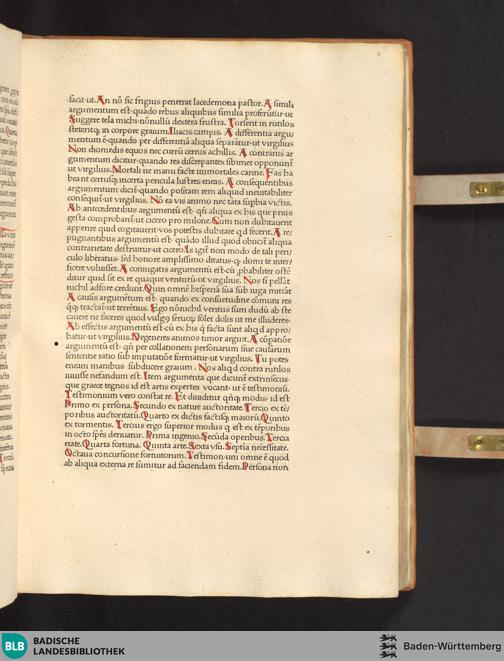 facit·ut. An nō sic frigius penetrat lacedemona pastor. A simili
argumentum est·quādo rebus aliquibus similia proferūtur·ut
Suggere tela michi·nōnullū dextera frustra. Torserit in rutilos
steterūtq; in corpore graium. Iliacis campis. A differentia argu
mentum ē·quando per differentiā aliqua separātur·ut virgilius
Non diomedis equos nec currū cernis achillis. A contrariis ar
gumentum dicitur·quando res discrepantes sibimet opponunt̄
ut virgilius. Mortali ne manu facte immortales carine. Fas ha
beant certusq; incerta pericula lustres eneas. A consequentibus
argumentum dicit̄·quando positam rem aliquid ineuitabiliter
consequit̄·ut virgilius. Nō ea vis animo nec tāta supbia victis.
Ab antecedentibus argumentū est· qn̄ aliqua ex his que prius
gesta comprobant̄·ut cicero pro milone. Cum non dubitauerit
apperire quid cogitauerit·vos potestis dubitare qd fecerit. A re/
pugnantibus argumentū est· quādo illud quod obiicit̄ aliqua
contrarietate destruitur·ut cicero. Is igit̄ non modo de tali peri/
culo liberatus· sed honore amplissimo ditatus·q; domi te inter/
ficere voluisset. A coniugatis argumentū est·cū pbabiliter ostē
ditur quid sit ex re quaque venturū·ut virgilius. Nos si pellāt
nichil adfore credunt. Quin omnē hesperiā sua sub iuga mittāt
A causis argumētum est· quando ex consuetudine cōmuni res
q̄q; tractat̄·ut terrētius. Ego nōnichil veritus sum dudū ab ste
cauere ne faceres quod vulgo seruoq; solet dolis ut me illuderes·
Ab effectis argumentū est·cū ex his q̄ facta sunt aliqd appro/
batur·ut virgilius. Degeneres animos timor arguit. A cōpatiōe
argumentū est· qn̄ per collationem personarum siue causarum
sententie ratio sub imputatiōe formatur·ut virgilius. Tu potes
eneam manibus subducere graium. Nos aliqd contra rutilos
iuuisse nefandum est. Item argumenta que dicunt̄ extrinsecus·
que graece tegnos id est artis expertes vocant̄· ut ē testimoniū.
Testimonium vero constat re. Et diuiditur q̄nq; modis· id est
Primo ex persona. Secundo ex nature auctoritate. Tercio ex tē/
poribus auctoritatū. Quarto ex dictis factisq; maiorū. Quinto
ex tormentis. Tercius ergo superior modus q est ex tēporibus
in octo spēs deriuatur. Prima ingenio. Secūda operibus. Tercia
etate. Quarta fortuna. Quinta arte. Sexta vsu. Septīa necessitate.
Octaua concursione fortuitorum. Testimon·um omne ē quod
ab aliqua externa re sumitur ad faciendam fidem. Persona non
BLB
BADISCHE
LANDESBIBLIOTHEK
Baden-Württemberg